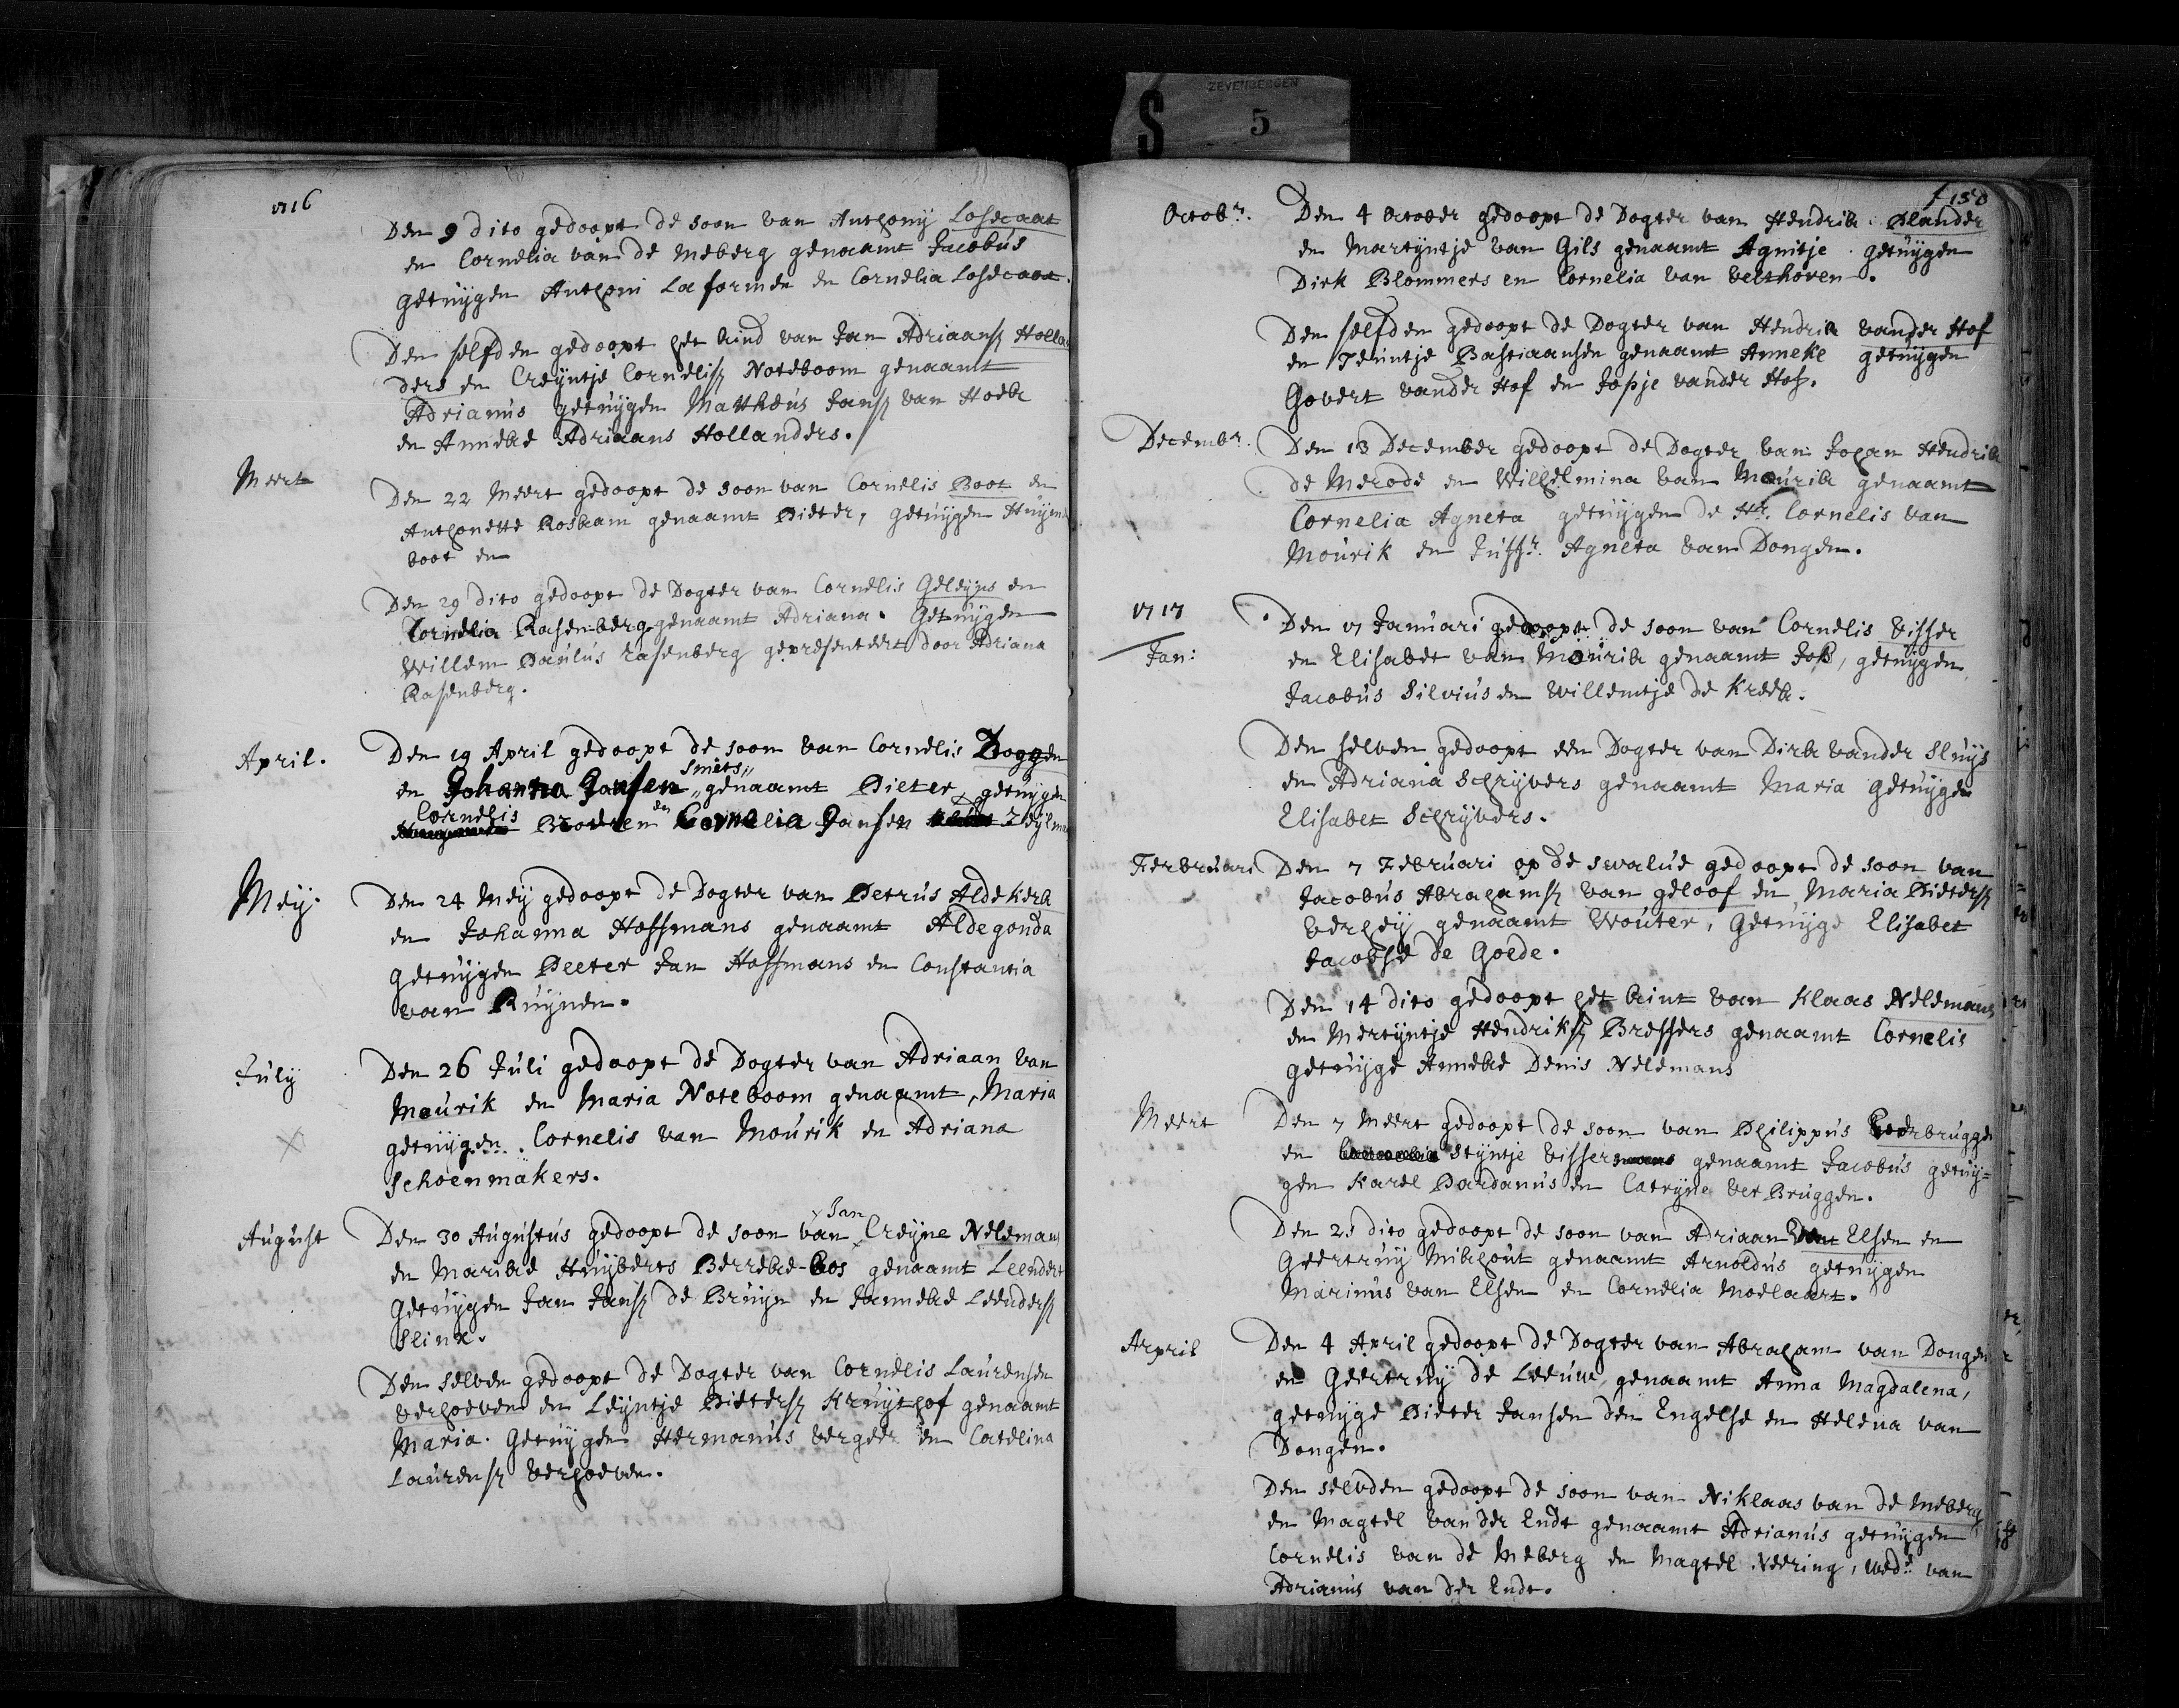 ZEVENBERGEN
S 5
1716
Den 9 dito gedoopt de soon van Anthonij Losecaat
en Cornelia van de Meberg genaamt Jacobus
Getuijgen Anthoni Laforme en Cornelia Losecaat.
Den selfden gedoopt het kind van Jan Adriaansz Hollan
ders en Creijntje Cornelisz Noteboom genaamt
Adrianus getuijgen Mattheus Jansz van Hoek
en Anneke Adriaans Hollanders.
Meert
Den 22 Meert gedoopt de soon van Cornelis Boot en
Anthonette Roskam genaamt Pieter, getuijgen Huijm
boot en
Den 29 dito gedoopt de Dogter van Cornelis Geleijns en
Cornelia Rasenberg genaamt Adriana. Getuijgen
Willem Paulus rasenberg gepresenteert door Adriana
Rasenberg.
April.
Den 19 April gedoopt de soon van Cornelis Doggen
en Johanna Jansen Smets genaamt Pieter getuijgen
Cornelis Broeken en Cornelia Jansen Zeijlma
Meij.
Den 24 Meij gedoopt de Dogter van Petrus Aldekerk
en Johanna Hoffmans genaamt Aldegonda
getuijgen Peeter Jan Hoffmans en Constantia
van Ruijnen.
Julij
Den 26 Juli gedoopt de Dogter van Adriaan van
Mourik en Maria Noteboom genaamt, Maria
getuijgen. Cornelis van Mourik en Adriana
Schoenmakers.
August
Den 30 Augustus gedoopt de soon van Jan Creijne Nelemans
en Marike Huijberts Berreke-Bos genaamt Leendert
Getuijgen Jan Jansz de Bruijn en Janneke Leendersz
Slinx.
Den selven gedoopt de Dogter van Cornelis Laurensen
verhoeven en Leijntje Pietersz Kruijthof genaamt
Maria. Getuijgen Hermanus vergeer en Catelina
Laurensz verhoeven.
f 150
Octobr.
Den 4 October gedoopt de Dogter van Hendrik Plander
en Martijntje van Gils genaamt Agnitje. getuijgen
Dirk Blommers en Cornelia van Velthoven.
Den selfden gedoopt de Dogter van Hendrik vander Hof
en Teuntje Bastiaansen genaamt Anneke getuijgen
Govert vander Hof en Jopje vander Hof.
Decembr.
Den 13 December gedoopt de Dogter van Johan Hendrik
de Merode en Wilhelmina van Mourik genaamt
Cornelia Agneta getuijgen de Hr. Cornelis van
Mourik en Juffr. Agneta van Dongen.
1717
Jan:
Den 17 Januari gedoopt de soon van Cornelis Visser
en Elisabet van Mourik genaamt Job, getuijgen
Jacobus Silvius en Willemtje de Kreek.
Den selven gedoopt een Dogter van Dirk vander Sluijs
en Adriana Schrijvers genaamt Maria getuijgen
Elisabet Schrijvers.
Ferbruari
Den 7 Februari op de swalue gedoopt de soon van
Jacobus Abrahamsz van geloof en Maria Pietersz
Verheij genaamt Wouter, Getuijge Elisabet
Jacobse de Goede.
Den 14 dito gedoopt het kint van Klaas Nelemans
en Mertijntje Hendriksz Bressers genaamt Cornelis
getuijge Anneke Denis Nelemans
Meert
Den 7 Meert gedoopt de soon van Philippus Verbrugge
en Stijntje Vissers genaamt Jacobus getuij=
gen Karel Dardanus en Catrijne ver Bruggen.
Den 25 dito gedoopt de soon van Adriaan van Elsen en
Geertruij Mikhout genaamt Arnoldus getuijgen
Marinus van Elsen en Cornelia Moelaert.
Arpril
Den 4 April gedoopt de Dogter van Abraham van Dongen
en Geertruij de Leeuw, genaamt Anna Magdalena,
getuijge Pieter Jansen den Engelse en Helena van
Dongen.
Den selvden gedoopt de soon van Niklaas van de Meberg
en Magtel van der Endt genaamt Adrianus getuijgen
Cornelis van de Meberg en Magtel Neering, wede van
Adrianus van der Endt.